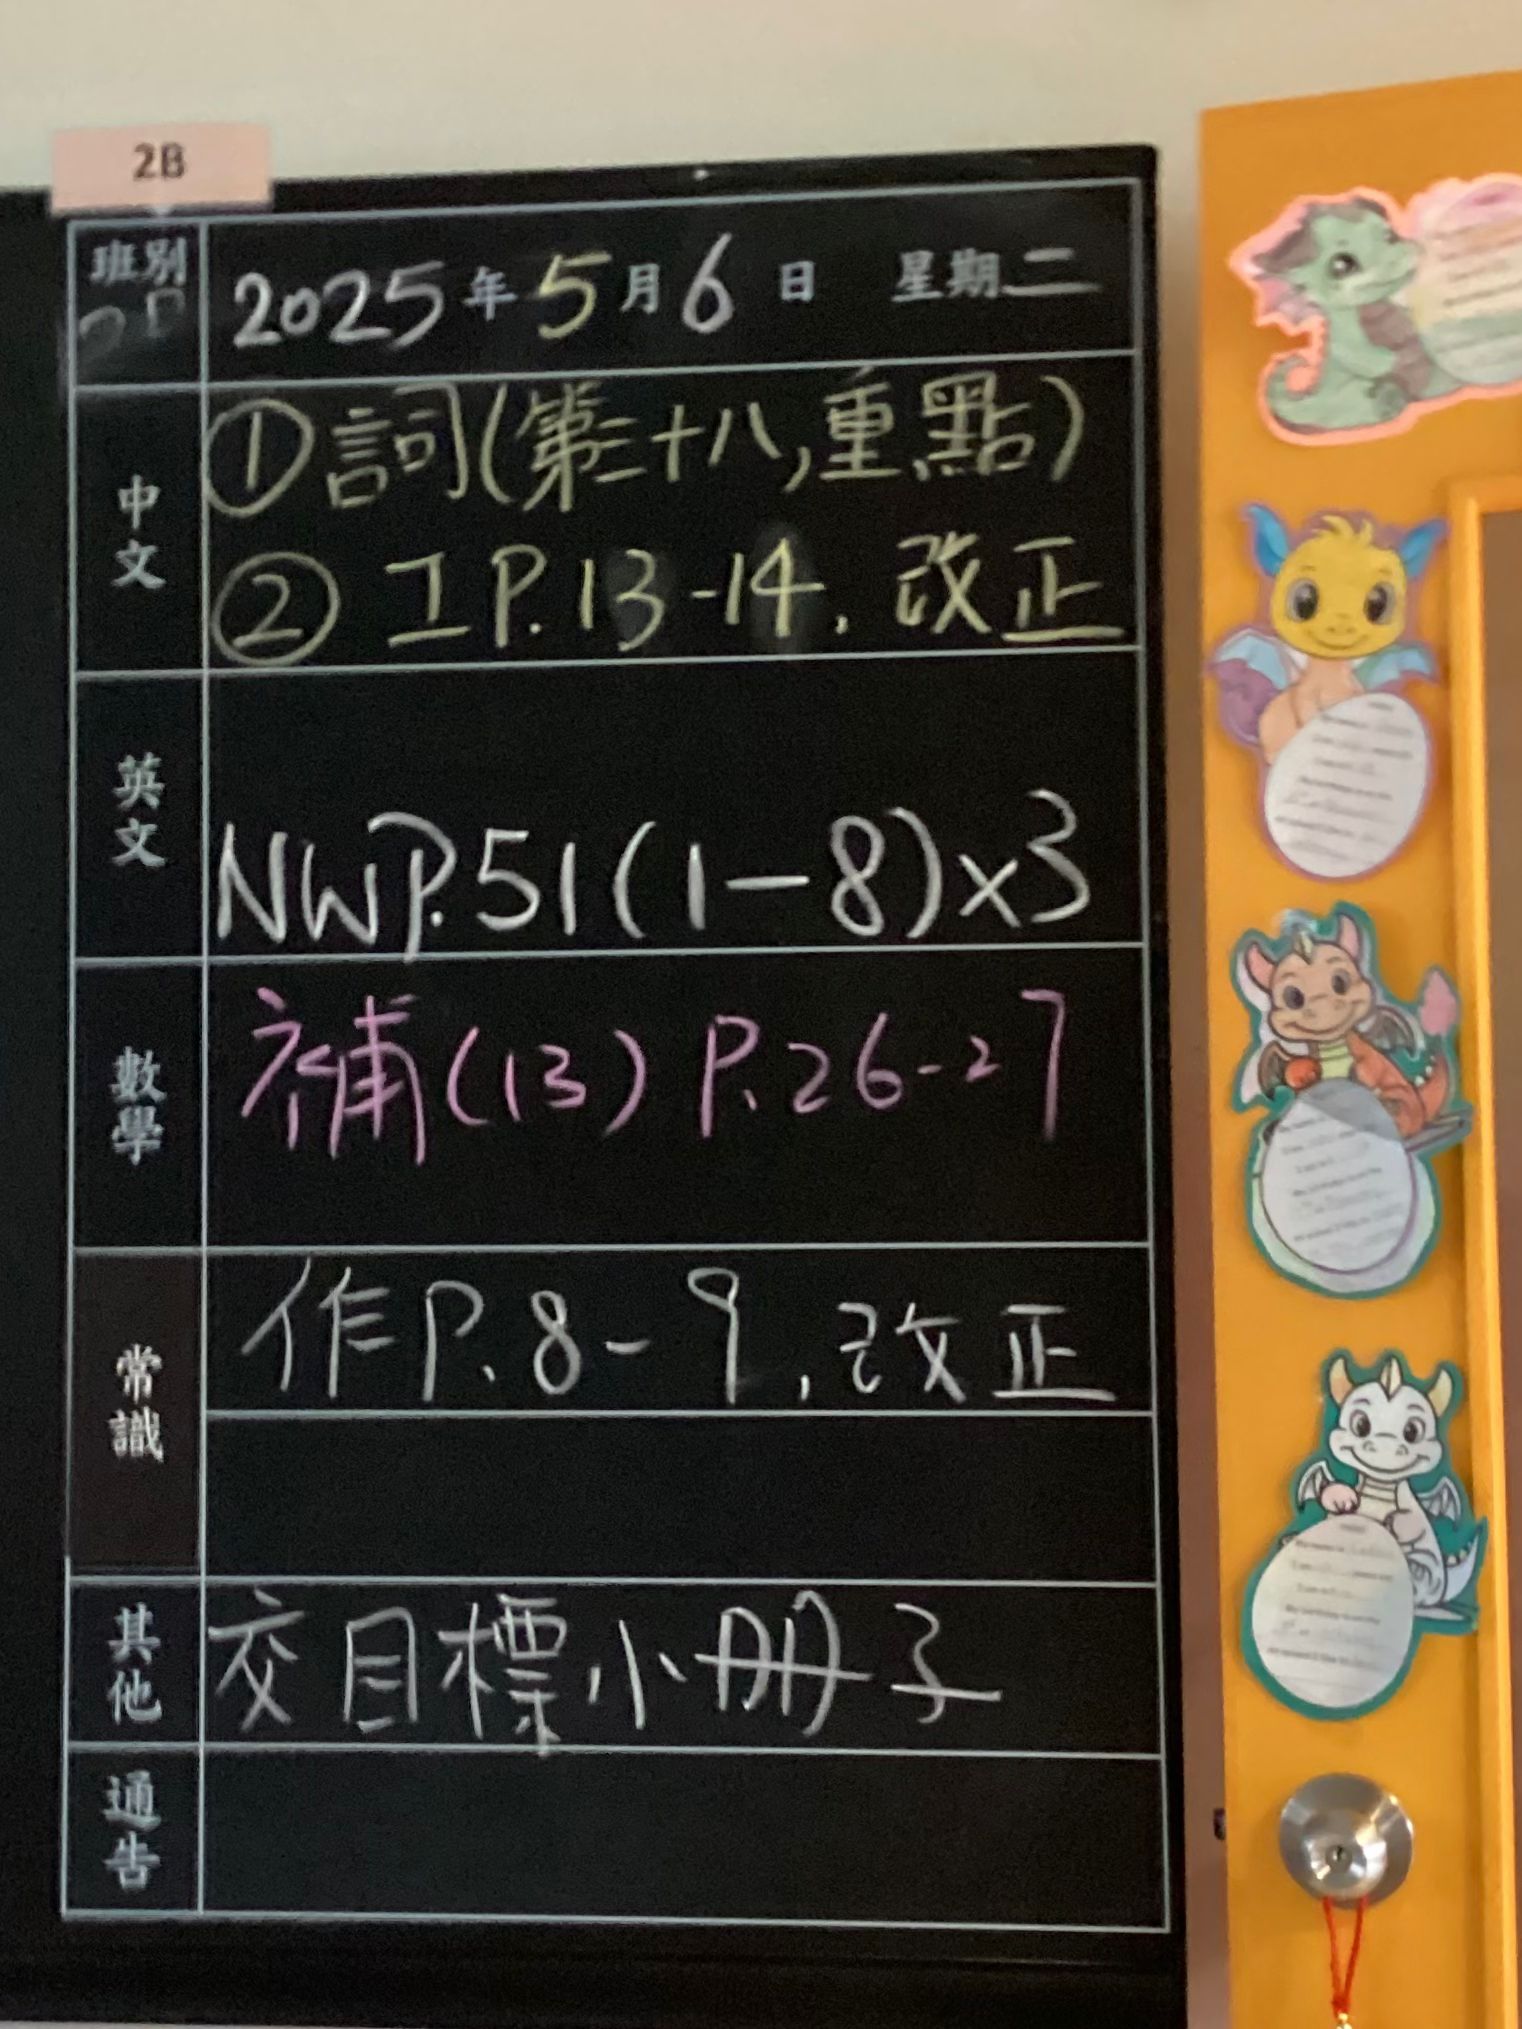 2B
班別 2025年5月6日 星期二
中文 ①詞(第三十八,重點)
②工P.13-14,改正
英文 NWP.51(1-8)x3
數學 補(13) P.26-27
常識 作P.8-9,改正
其他 交目標小冊子
通告